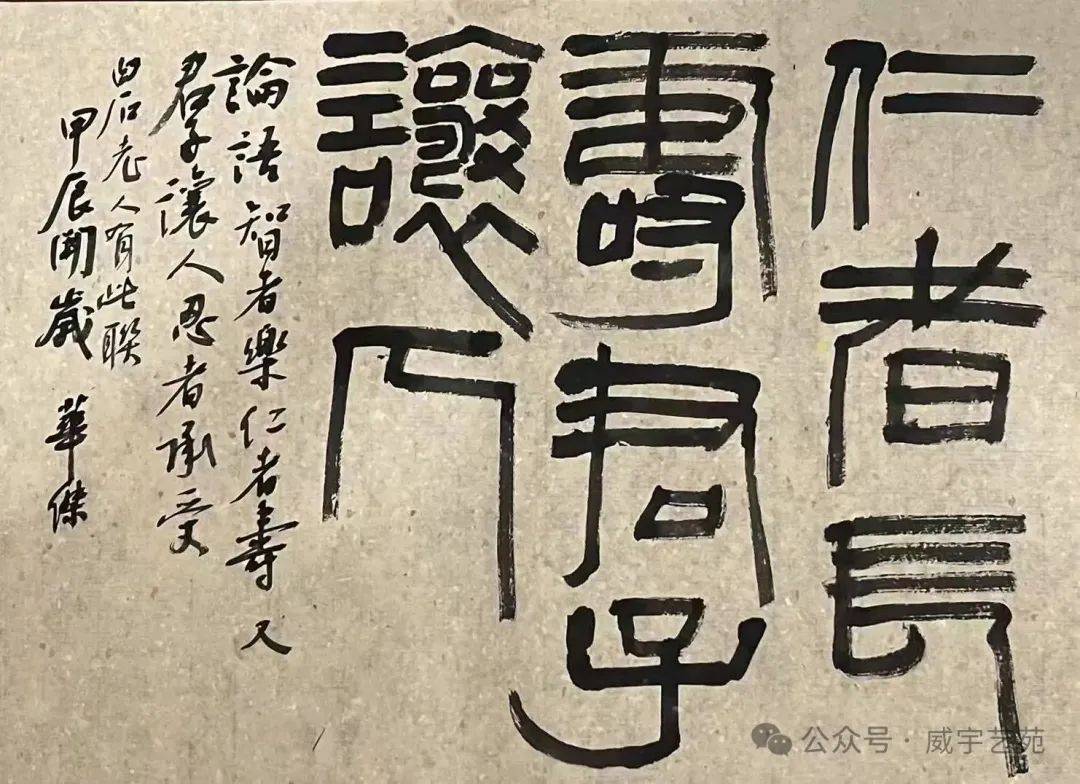 仁者長
壽君子
讓人
論語智者樂仁者壽又
君子讓人忍者承受
白石老人有此聯
甲辰開歲 華傑
公众号·威宇艺苑